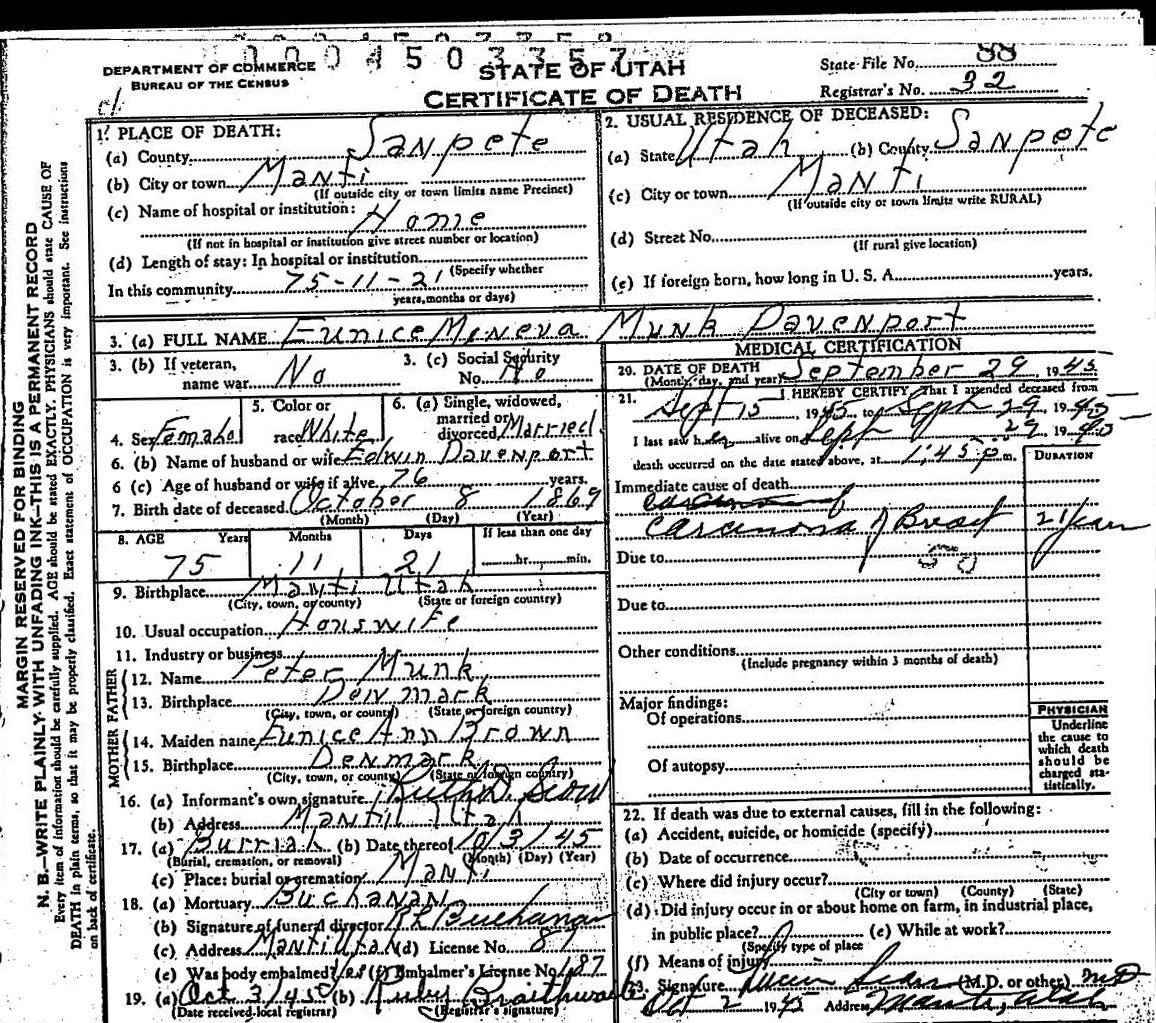 0 0 0 4 5 0 3 3 5 7
DEPARTMENT OF COMMERCE
BUREAU OF THE CENSUS
STATE OF UTAH
CERTIFICATE OF DEATH
State File No. 88
Registrar's No. 32
MARGIN RESERVED FOR BINDING
N. B.—WRITE PLAINLY WITH UNFADING INK—THIS IS A PERMANENT RECORD
Every item of information should be carefully supplied. AGE should be stated EXACTLY. PHYSICIANS should state CAUSE OF
DEATH in plain terms, so that it may be properly classified. Exact statement of OCCUPATION is very important. See instructions
on back of certificate.
1. PLACE OF DEATH:
(a) County Sanpete
(b) City or town Manti
(If outside city or town limits name Precinct)
(c) Name of hospital or institution:
Home
(If not in hospital or institution give street number or location)
(d) Length of stay: In hospital or institution
(Specify whether
In this community 75-11-21
years, months or days)
2. USUAL RESIDENCE OF DECEASED:
(a) State Utah (b) County Sanpete
(c) City or town Manti
(If outside city or town limits write RURAL)
(d) Street No.
(If rural give location)
(e) If foreign born, how long in U. S. A. years.
3. (a) FULL NAME Eunice Meneva Munk Davenport
3. (b) If veteran,
name war No
3. (c) Social Security
No. No
4. Sex Female
5. Color or
race White
6. (a) Single, widowed,
married or
divorced Married
6. (b) Name of husband or wife Edwin Davenport
6 (c) Age of husband or wife if alive 76 years.
7. Birth date of deceased October 8 1869
(Month) (Day) (Year)
8. AGE Years Months Days If less than one day
75 11 21 hr. min.
9. Birthplace Manti Utah
(City, town, or county) (State or foreign country)
10. Usual occupation Houswife
11. Industry or business
FATHER
12. Name Peter Munk
13. Birthplace Denmark
(City, town, or county) (State or foreign country)
MOTHER
14. Maiden name Eunice Ann Brown
15. Birthplace Denmark
(City, town, or county) (State or foreign country)
16. (a) Informant's own signature Ruth D.
(b) Address Manti Utah
17. (a) Burrial (b) Date thereof 10/3/45
(Burial, cremation, or removal) (Month) (Day) (Year)
(c) Place: burial or cremation Manti
18. (a) Mortuary Buchanan
(b) Signature of funeral director Buchanan
(c) Address Manti Utah (d) License No. 87
(e) Was body embalmed? Yes (f) Embalmer's License No. 187
19. (a) Oct 3/45 (b) Ruby Braithwaite
(Date received local registrar) (Registrar's signature)
MEDICAL CERTIFICATION
20. DATE OF DEATH
(Month, day, and year) September 29, 1945.
21. I HEREBY CERTIFY That I attended deceased from
Sept 15, 1945, to Sept 29 1945
I last saw her alive on Sept 29 1945
death occurred on the date stated above, at 1:45 p.m.
DURATION
Immediate cause of death
Carcinoma of
Carcinoma of Breast 2 years
Due to
50
Due to
Other conditions
(Include pregnancy within 3 months of death)
Major findings:
Of operations
Of autopsy
PHYSICIAN
Underline
the cause to
which death
should be
charged sta-
tistically.
22. If death was due to external causes, fill in the following:
(a) Accident, suicide, or homicide (specify)
(b) Date of occurrence
(c) Where did injury occur?
(City or town) (County) (State)
(d) Did injury occur in or about home on farm, in industrial place,
in public place? (e) While at work?
(Specify type of place
(f) Means of injury
23. Signature (M.D. or other) MD
Oct 2 1945 Address Manti, Utah